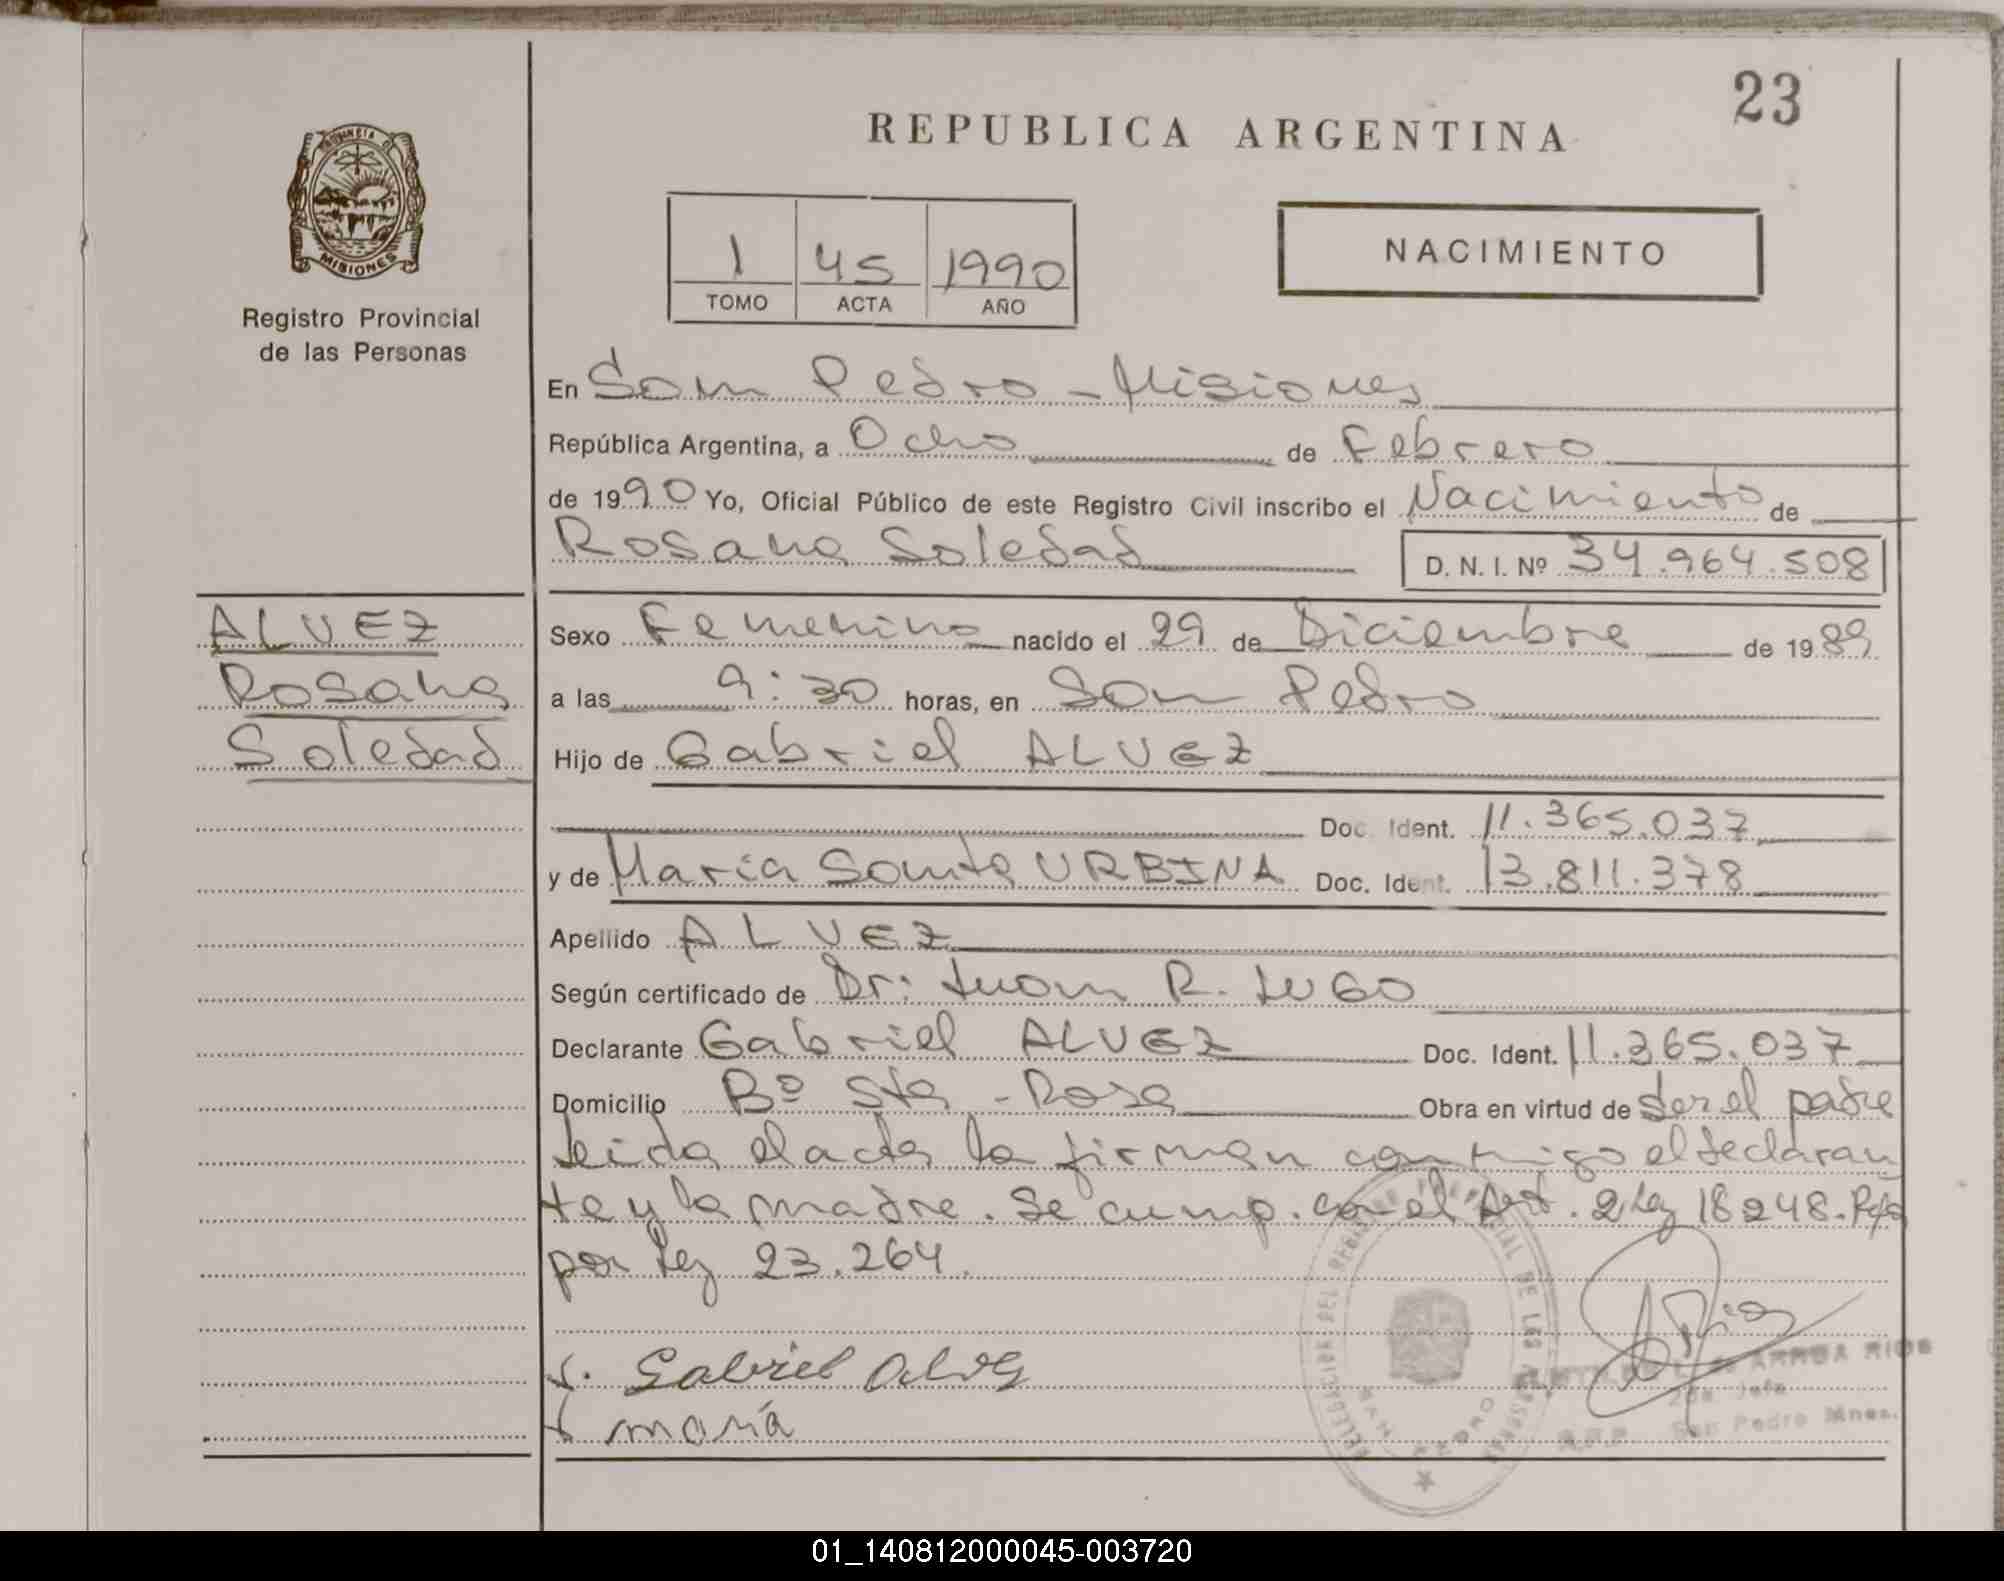 23
REPUBLICA ARGENTINA
PROVINCIA DE
MISIONES
Registro Provincial
de las Personas
1 45 1990
TOMO ACTA AÑO
NACIMIENTO
En San Pedro - Misiones
República Argentina, a Ocho de Febrero
de 1990 Yo, Oficial Público de este Registro Civil inscribo el Nacimiento de
Rosana Soledad D. N. I. Nº 34.964.508
ALVEZ
Rosana
Soledad
Sexo Femenino nacido el 29 de Diciembre de 1989
a las 9:30 horas, en San Pedro
Hijo de Gabriel ALVEZ
Doc. Ident. 11.365.037
y de Maria Santa URBINA Doc. Ident. 13.811.378
Apellido ALVEZ
Según certificado de Dr: Juan R. LUGO
Declarante Gabriel ALVEZ Doc. Ident. 11.365.037
Domicilio Bº Sta - Rosa Obra en virtud de Ser el padre
Leida el acta la firman conmigo el declaran
te y la madre. Se cump. con el Art. 2 Ley 18248.
por Ley 23.264.
Gabriel Alvez
maría
DELEGACION DEL REGISTRO PROVINCIAL DE LAS PERSONAS
SAN PEDRO
RIOS
2da Jefa
San Pedro Mnes.
01_140812000045-003720